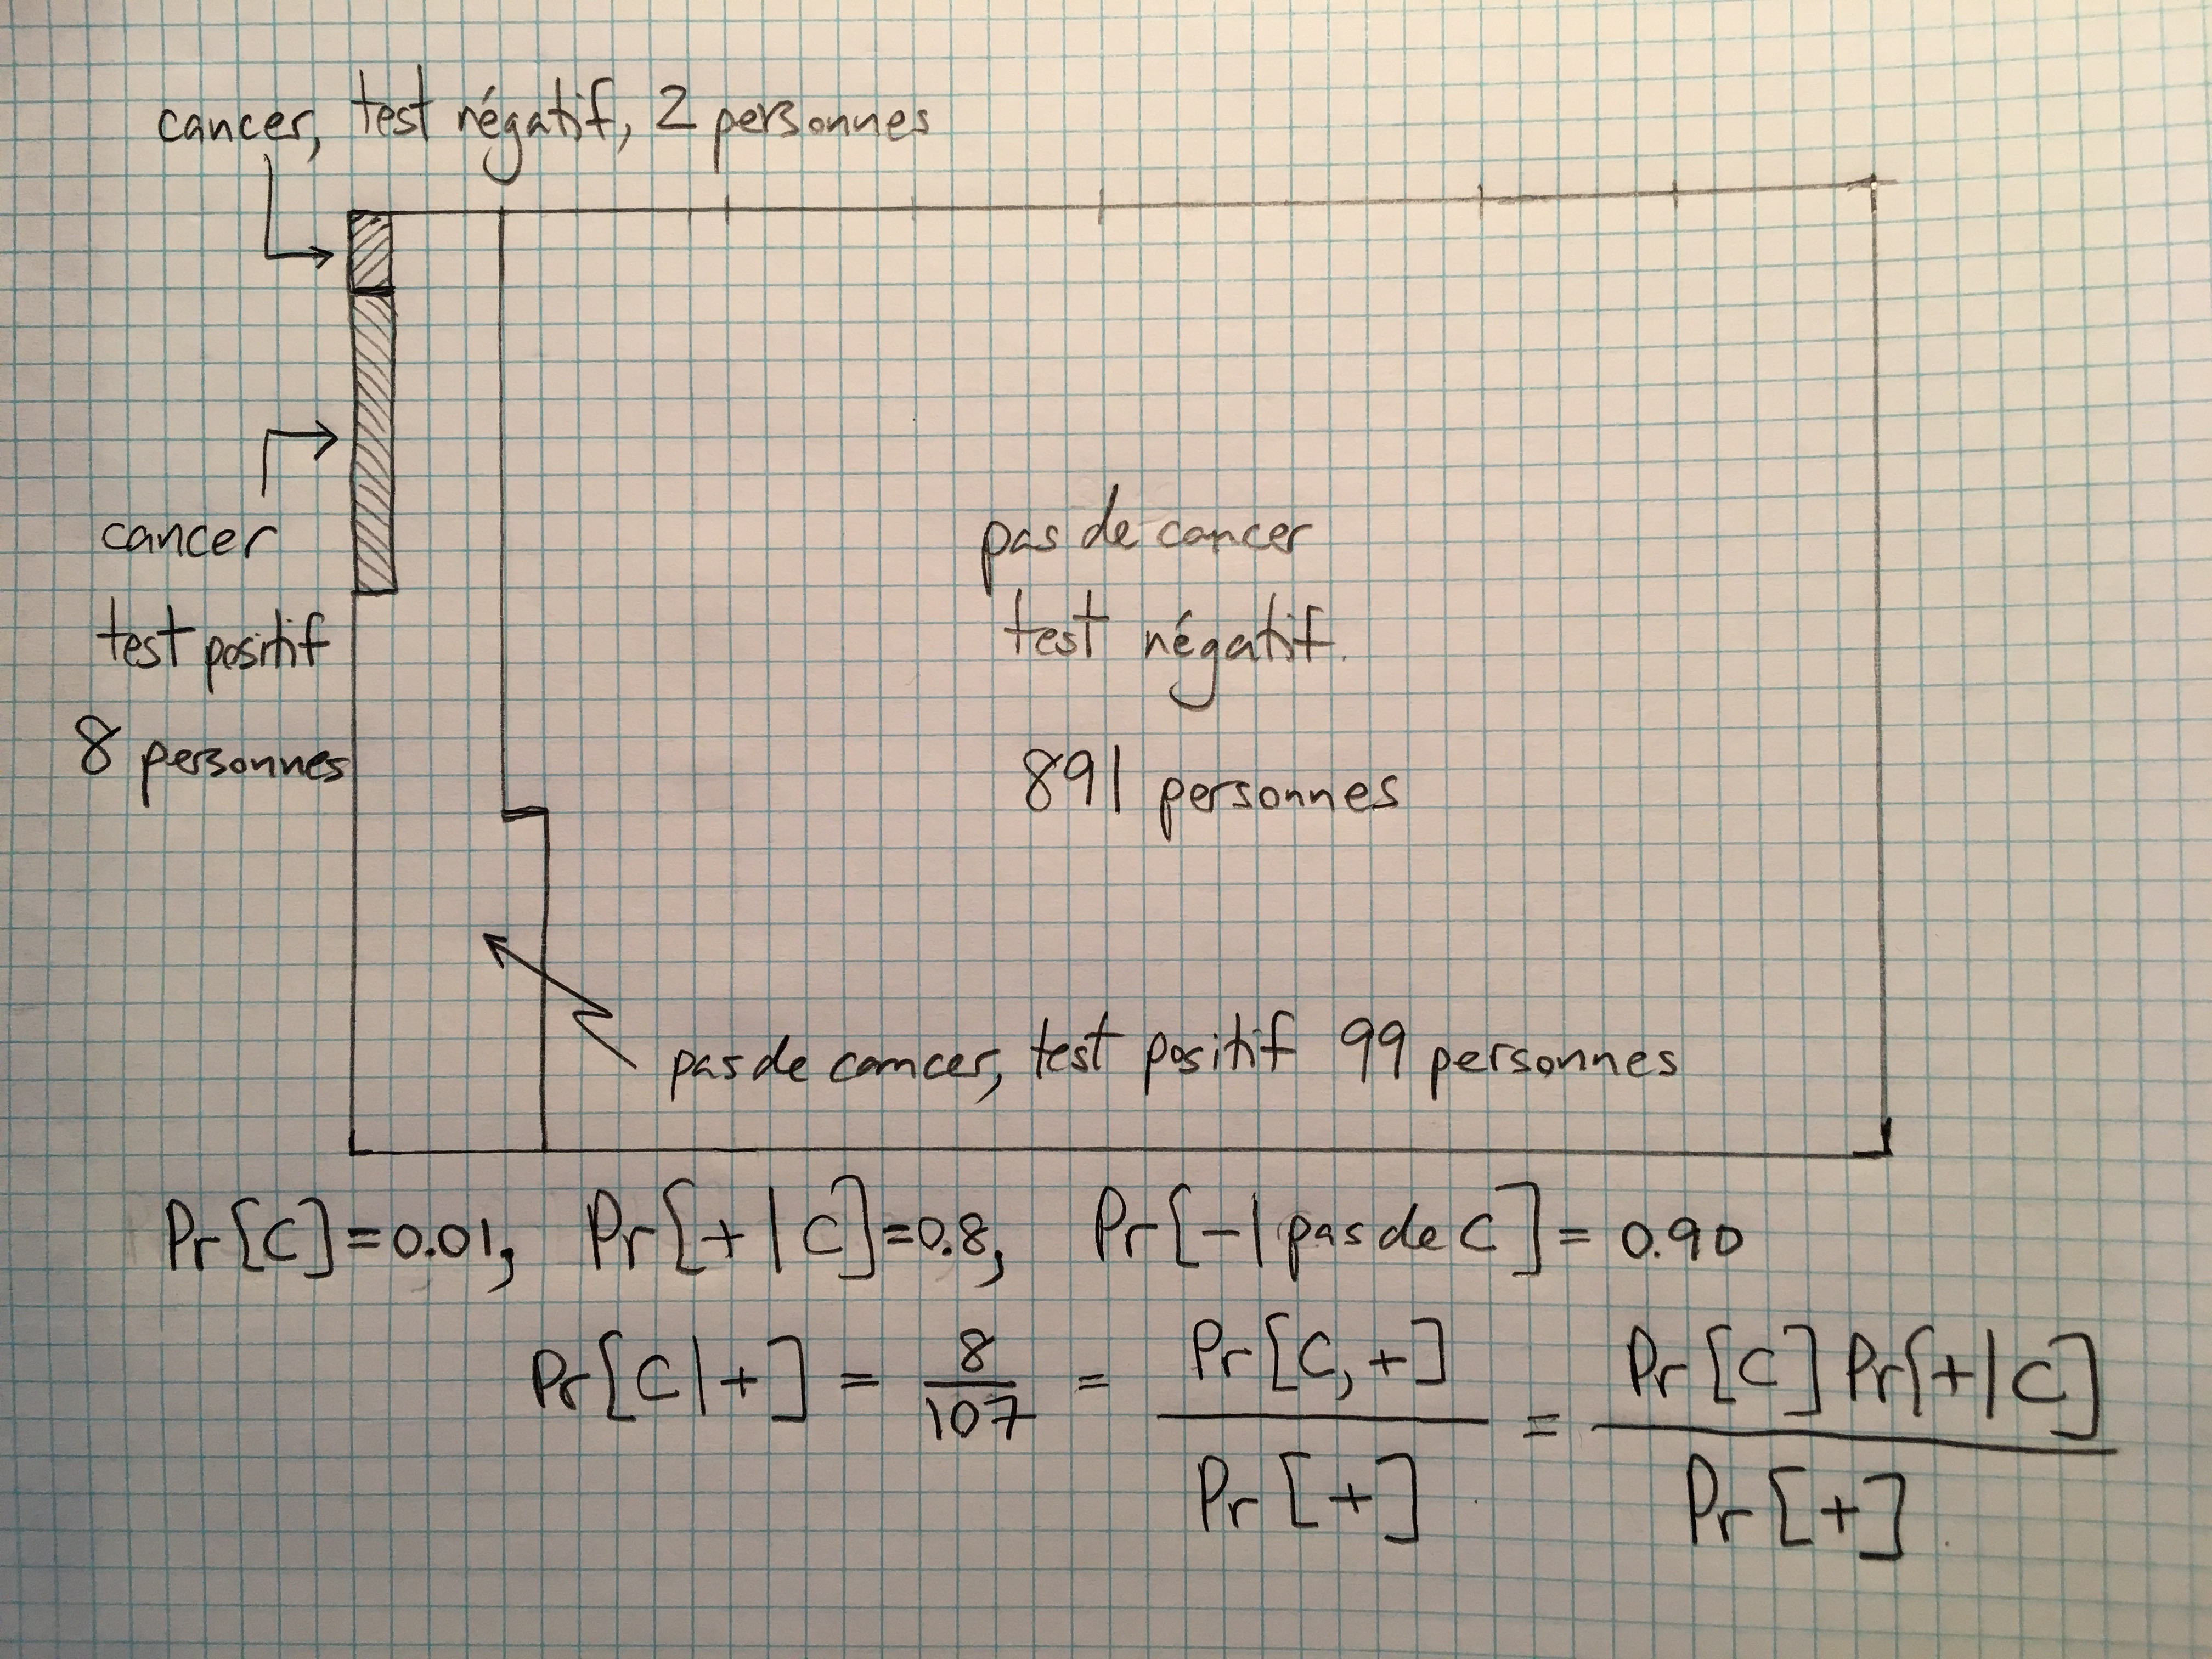 cancer, test négatif, 2 personnes
cancer
test positif
8 personnes
pas de cancer
test négatif
891 personnes
pas de cancer, test positif 99 personnes
Pr[C]=0.01, Pr[+|C]=0.8, Pr[-|pas de C]=0.90
Pr[C|+] = 8/107 = Pr[C,+]/Pr[+] = Pr[C]Pr[+|C]/Pr[+]